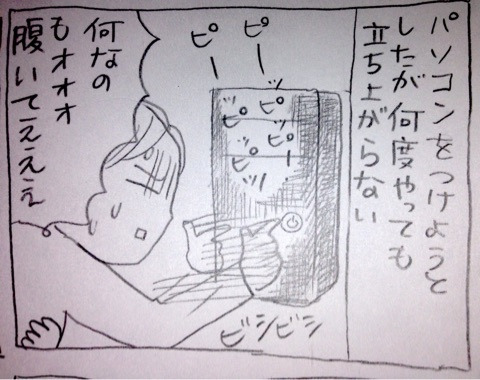 パソコンをつけようと
したが何度やっても
立ち上がらない
ピー
ピー
ピッ
ピッ
ピー
ピッ
ビシビシ
何なの
もオオオ
腹いてえええ